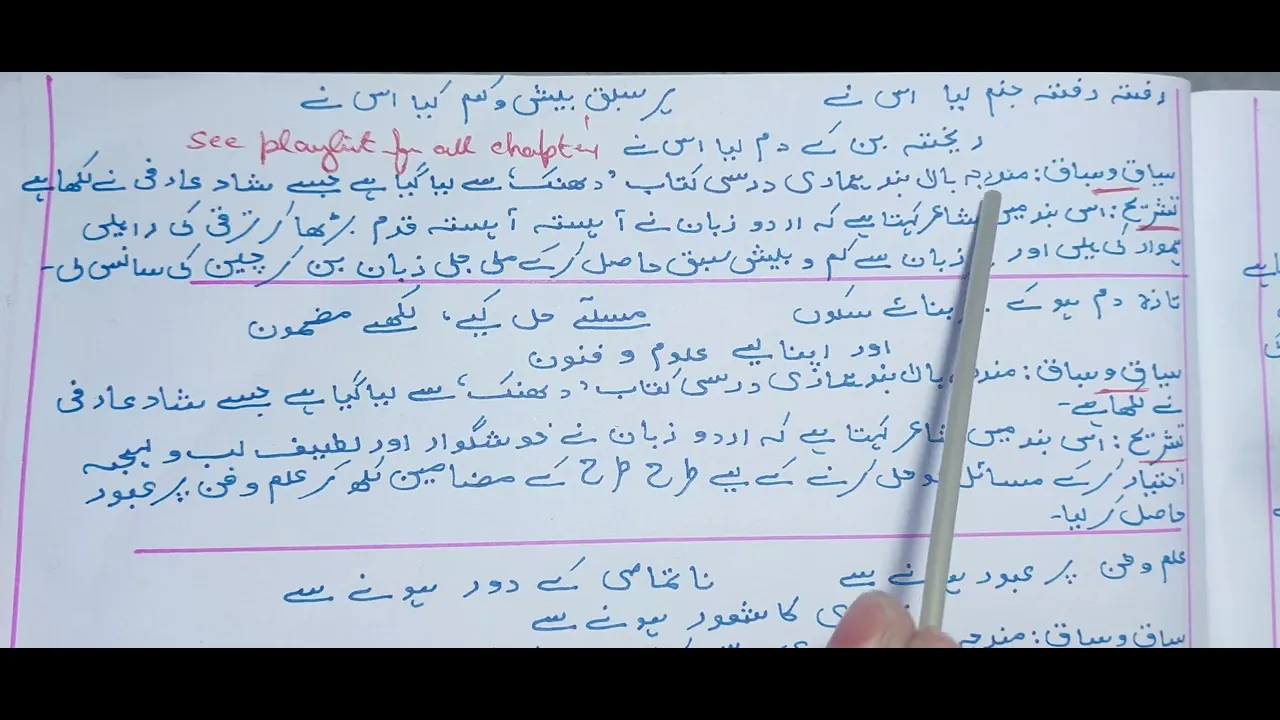 رفتہ رفتہ جنم لیا اس نے ہر سبق بیش و کم کیا اس نے
ریختہ بن کے دم لیا اس نے See playlist for all chapter
سیاق و سباق: مندرجہ بالا بند ہماری درسی کتاب 'دھنک' سے لیا گیا ہے جسے شاد عارفی نے لکھا ہے
تشریح: اس بند میں شاعر کہتا ہے کہ اردو زبان نے آہستہ آہستہ قدم بڑھا کر ترقی کی راہیں
ہموار کی ہیں اور زبان سے کم و بیش سبق حاصل کرکے ملی جلی زبان بن کر چین کی سانس لی-
تازہ دم ہو کے بنائے سکوں مسئلے حل کیے، لکھے مضمون
اور اپنا لیے علوم و فنون
سیاق و سباق: بالا بند ہماری درسی کتاب 'دھنک' سے لیا گیا ہے جسے شاد عارفی
نے لکھا ہے-
تشریح: اس بند میں شاعر کہتا ہے کہ اردو زبان نے خوشگوار اور لطیف لب و لہجہ
اختیار کرکے مسائل حل کرنے کے لیے طرح طرح کے مضامین لکھ کر علم و فن پر عبور
حاصل کر لیا-
علم و فن پر عبور ہونے سے ناتمامی کے دور ہونے سے
کا شعور ہونے سے
سیاق و سباق: